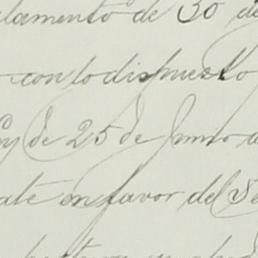 lamento de 30 de
con lo dispuesto
ey de 25 de Junio d
até en favor del Se